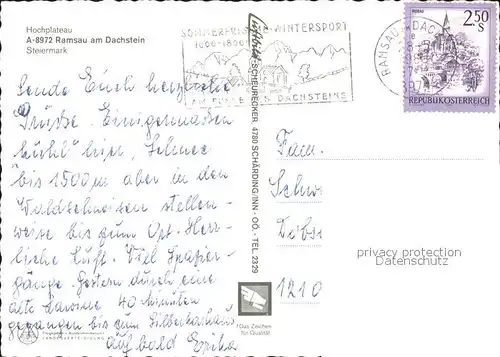 Hochplateau
A-8972 Ramsau am Dachstein
Steiermark
Sende Euch herzliche
Grüsse. Einigermaßen
"kühl" hier, Schnee
bis 1500 m aber in den
Waldschneisen stellen-
weise bis zum Ort. Herr-
liche Luft. Viel Spazier-
gänge. Gestern durch eine
alte Lawine 40 Minuten
gegangen bis zum Silberkarhaus
Auf bald Erika
LANDESVERTEIDIGUNG
SOMMERFRISCHE-WINTERSPORT
1000-1800
AM FUSSE DES DACHSTEINS
RAMSAU DACH
8972
2.50
S
REPUBLIK ÖSTERREICH
SCHEURECKER, 4780 SCHÄRDING/INN - OÖ. - TEL. 2329
Das Zeichen
für Qualität
Fam.
Schw
1210
privacy protection
Datenschutz